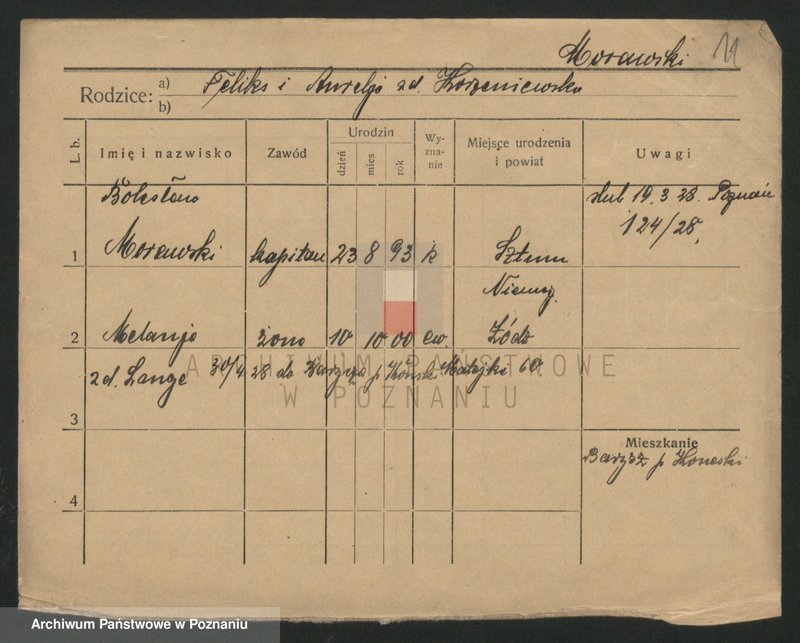 Morawski 11
Rodzice: a) Feliks i Aurelja zd. Korzeniewska
b)
L. b. Imię i nazwisko Zawód Urodzin Wyznanie Miejsce urodzenia i powiat Uwagi
dzień mies rok
Bolesław ślub 19. 3 28. Poznań
124/28,
1 Morawski kapitan 23 8 93 k Sztum
Niemcy
2 Melanja żona 10 10 00 ew. Łódź
zd. Lange 30/4 28 do p Matejki 60
3
Mieszkanie
p
4
ARCHIWUM PAŃSTWOWE
W POZNANIU
Archiwum Państwowe w Poznaniu